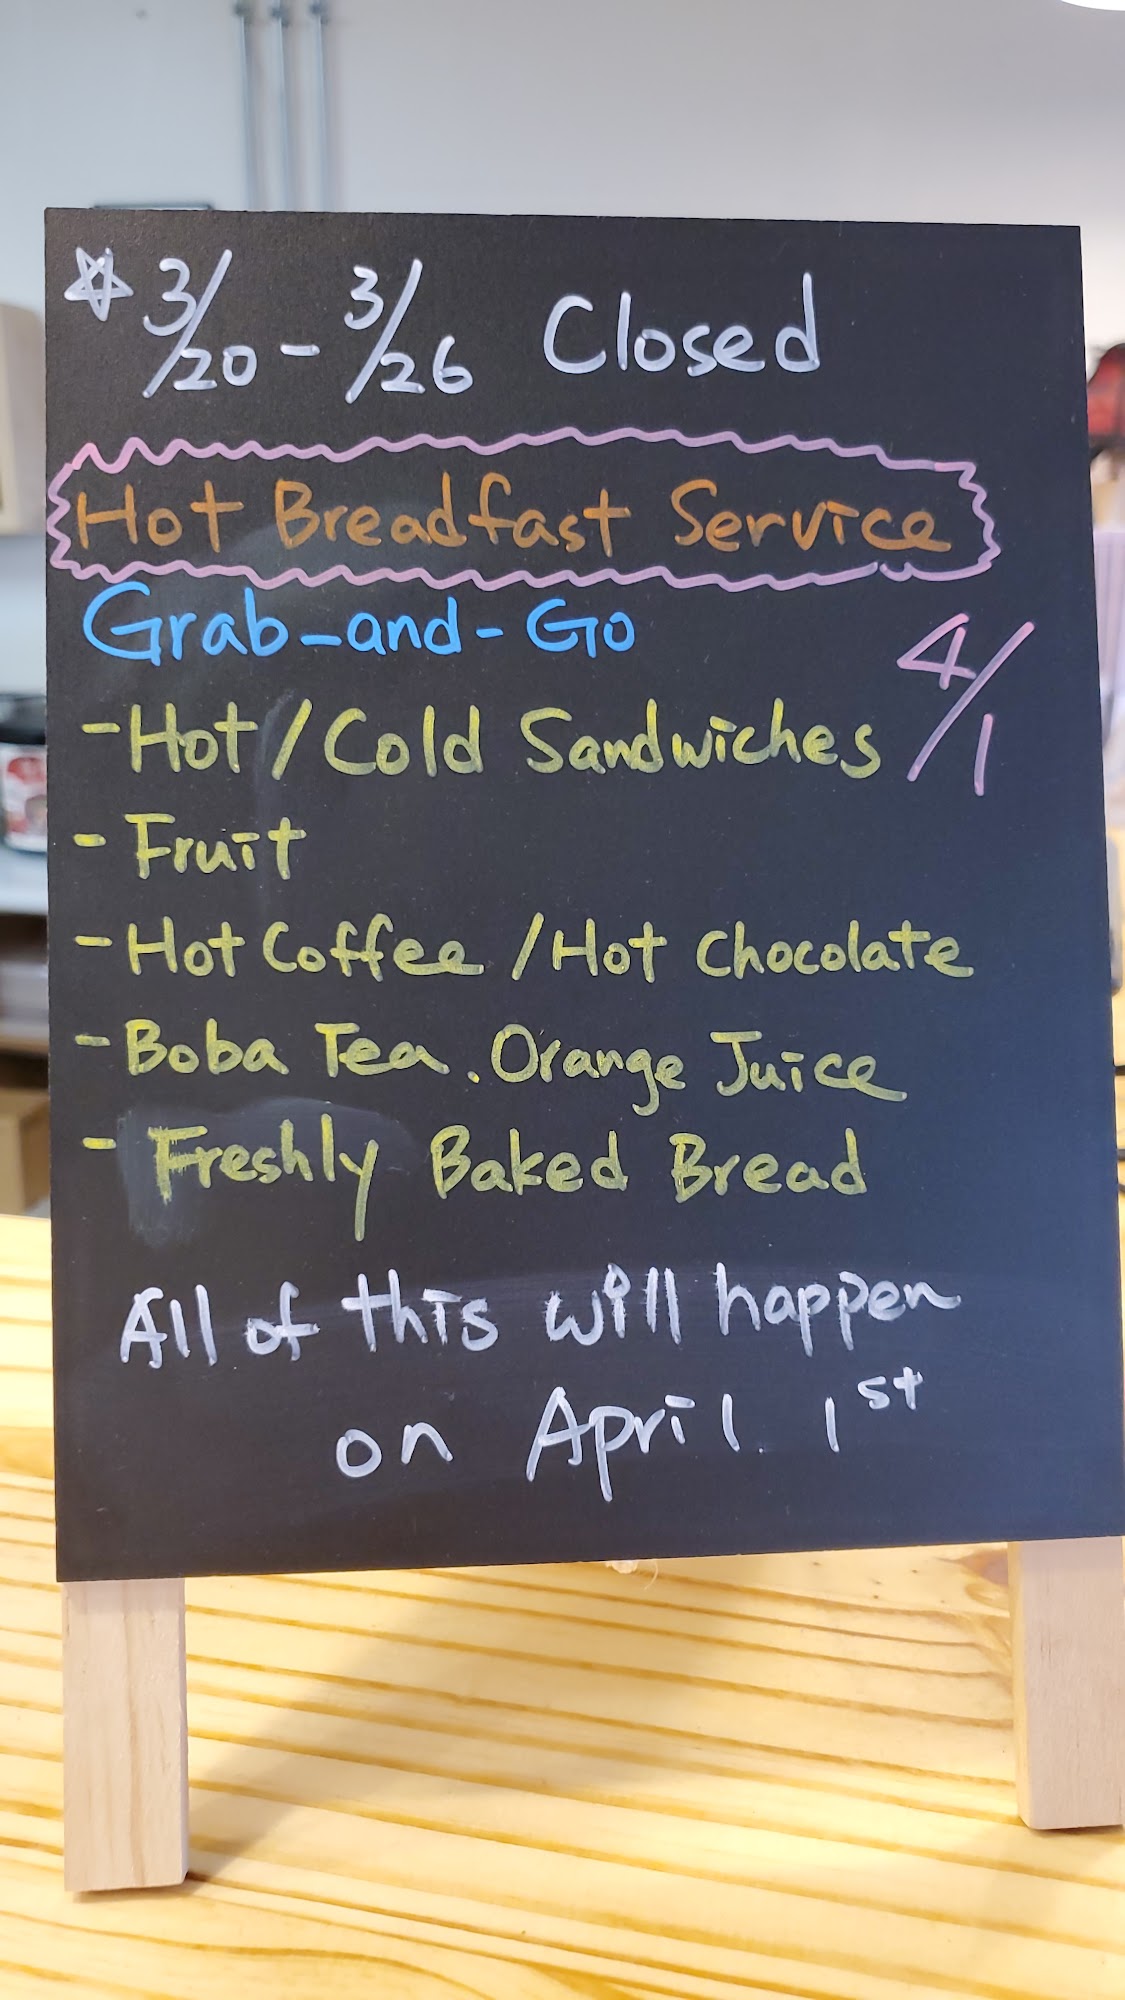 ☆ 3/20 - 3/26 Closed
Hot Breadfast Service
Grab-and-Go
4/1
- Hot / Cold Sandwiches
- Fruit
- Hot Coffee / Hot Chocolate
- Boba Tea. Orange Juice
- Freshly Baked Bread
All of this will happen
on April 1st